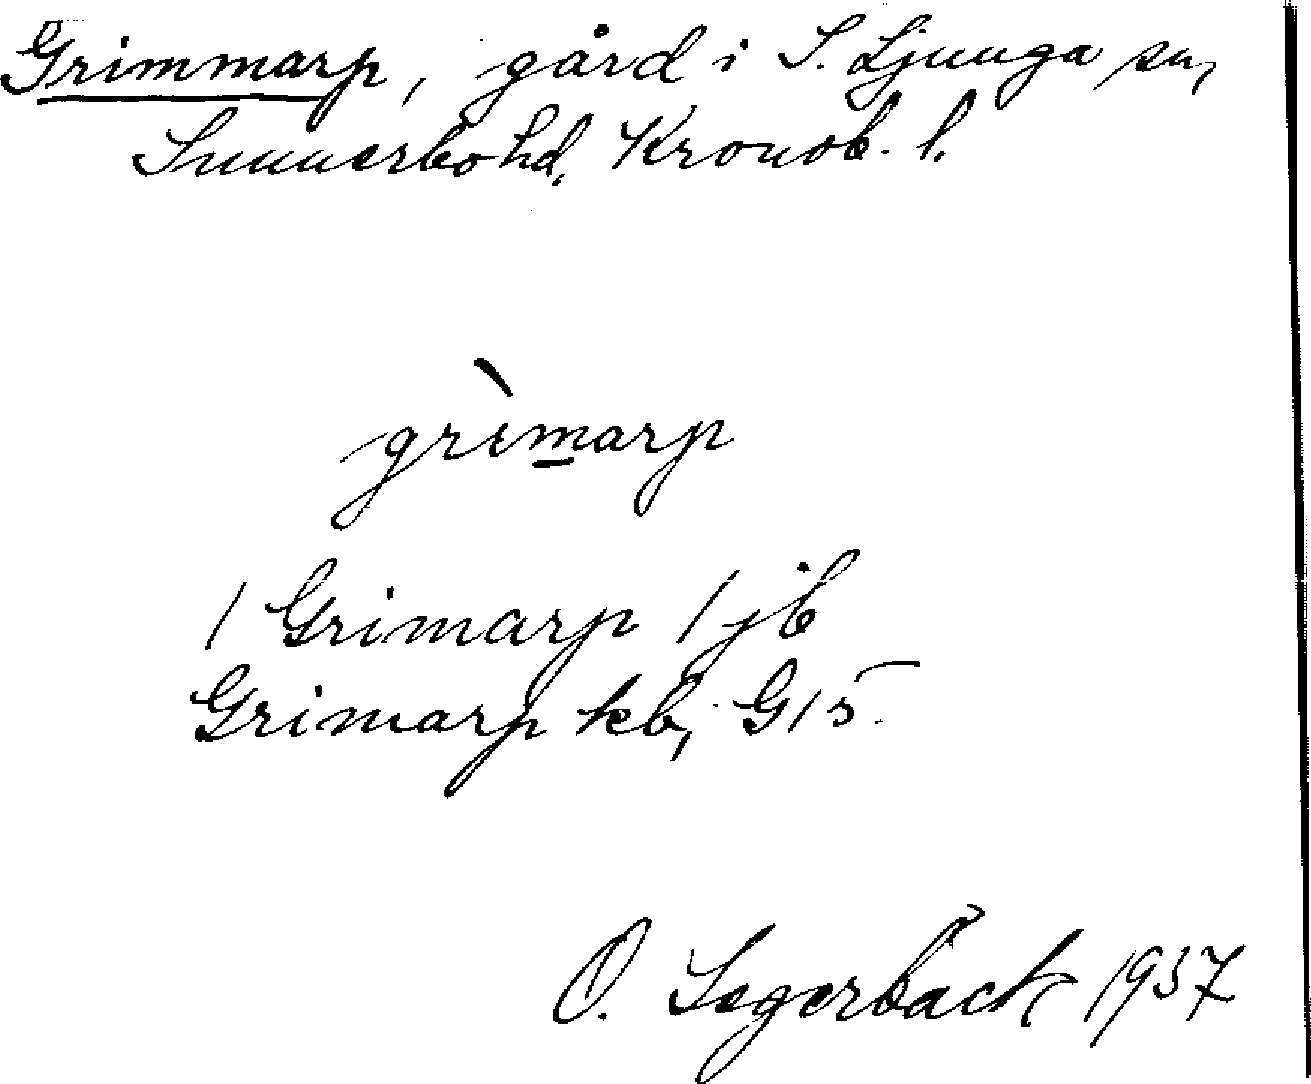 Grimmarp, gård i S. Ljunga sn,
Sunnerbo hd, Kronob. l.
grìmarp
/ Grimarp / jb
Grimarp kb, G15.
O. Segerbäck 1937